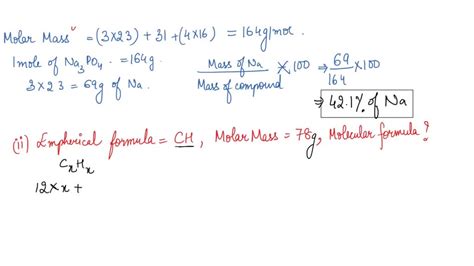 Molar Mass = (3×23) + 31 + (4×16) = 164g/mol.
1mole of Na₃PO₄ = 164g.
3×23 = 69g of Na.
Mass of Na / Mass of compound × 100 ⇒ 69/164 ×100
⇒ 42.1% of Na
(ii) Empherical formula = CH, Molar Mass = 78g, Molecular formula?
CₓHₓ
12×x +